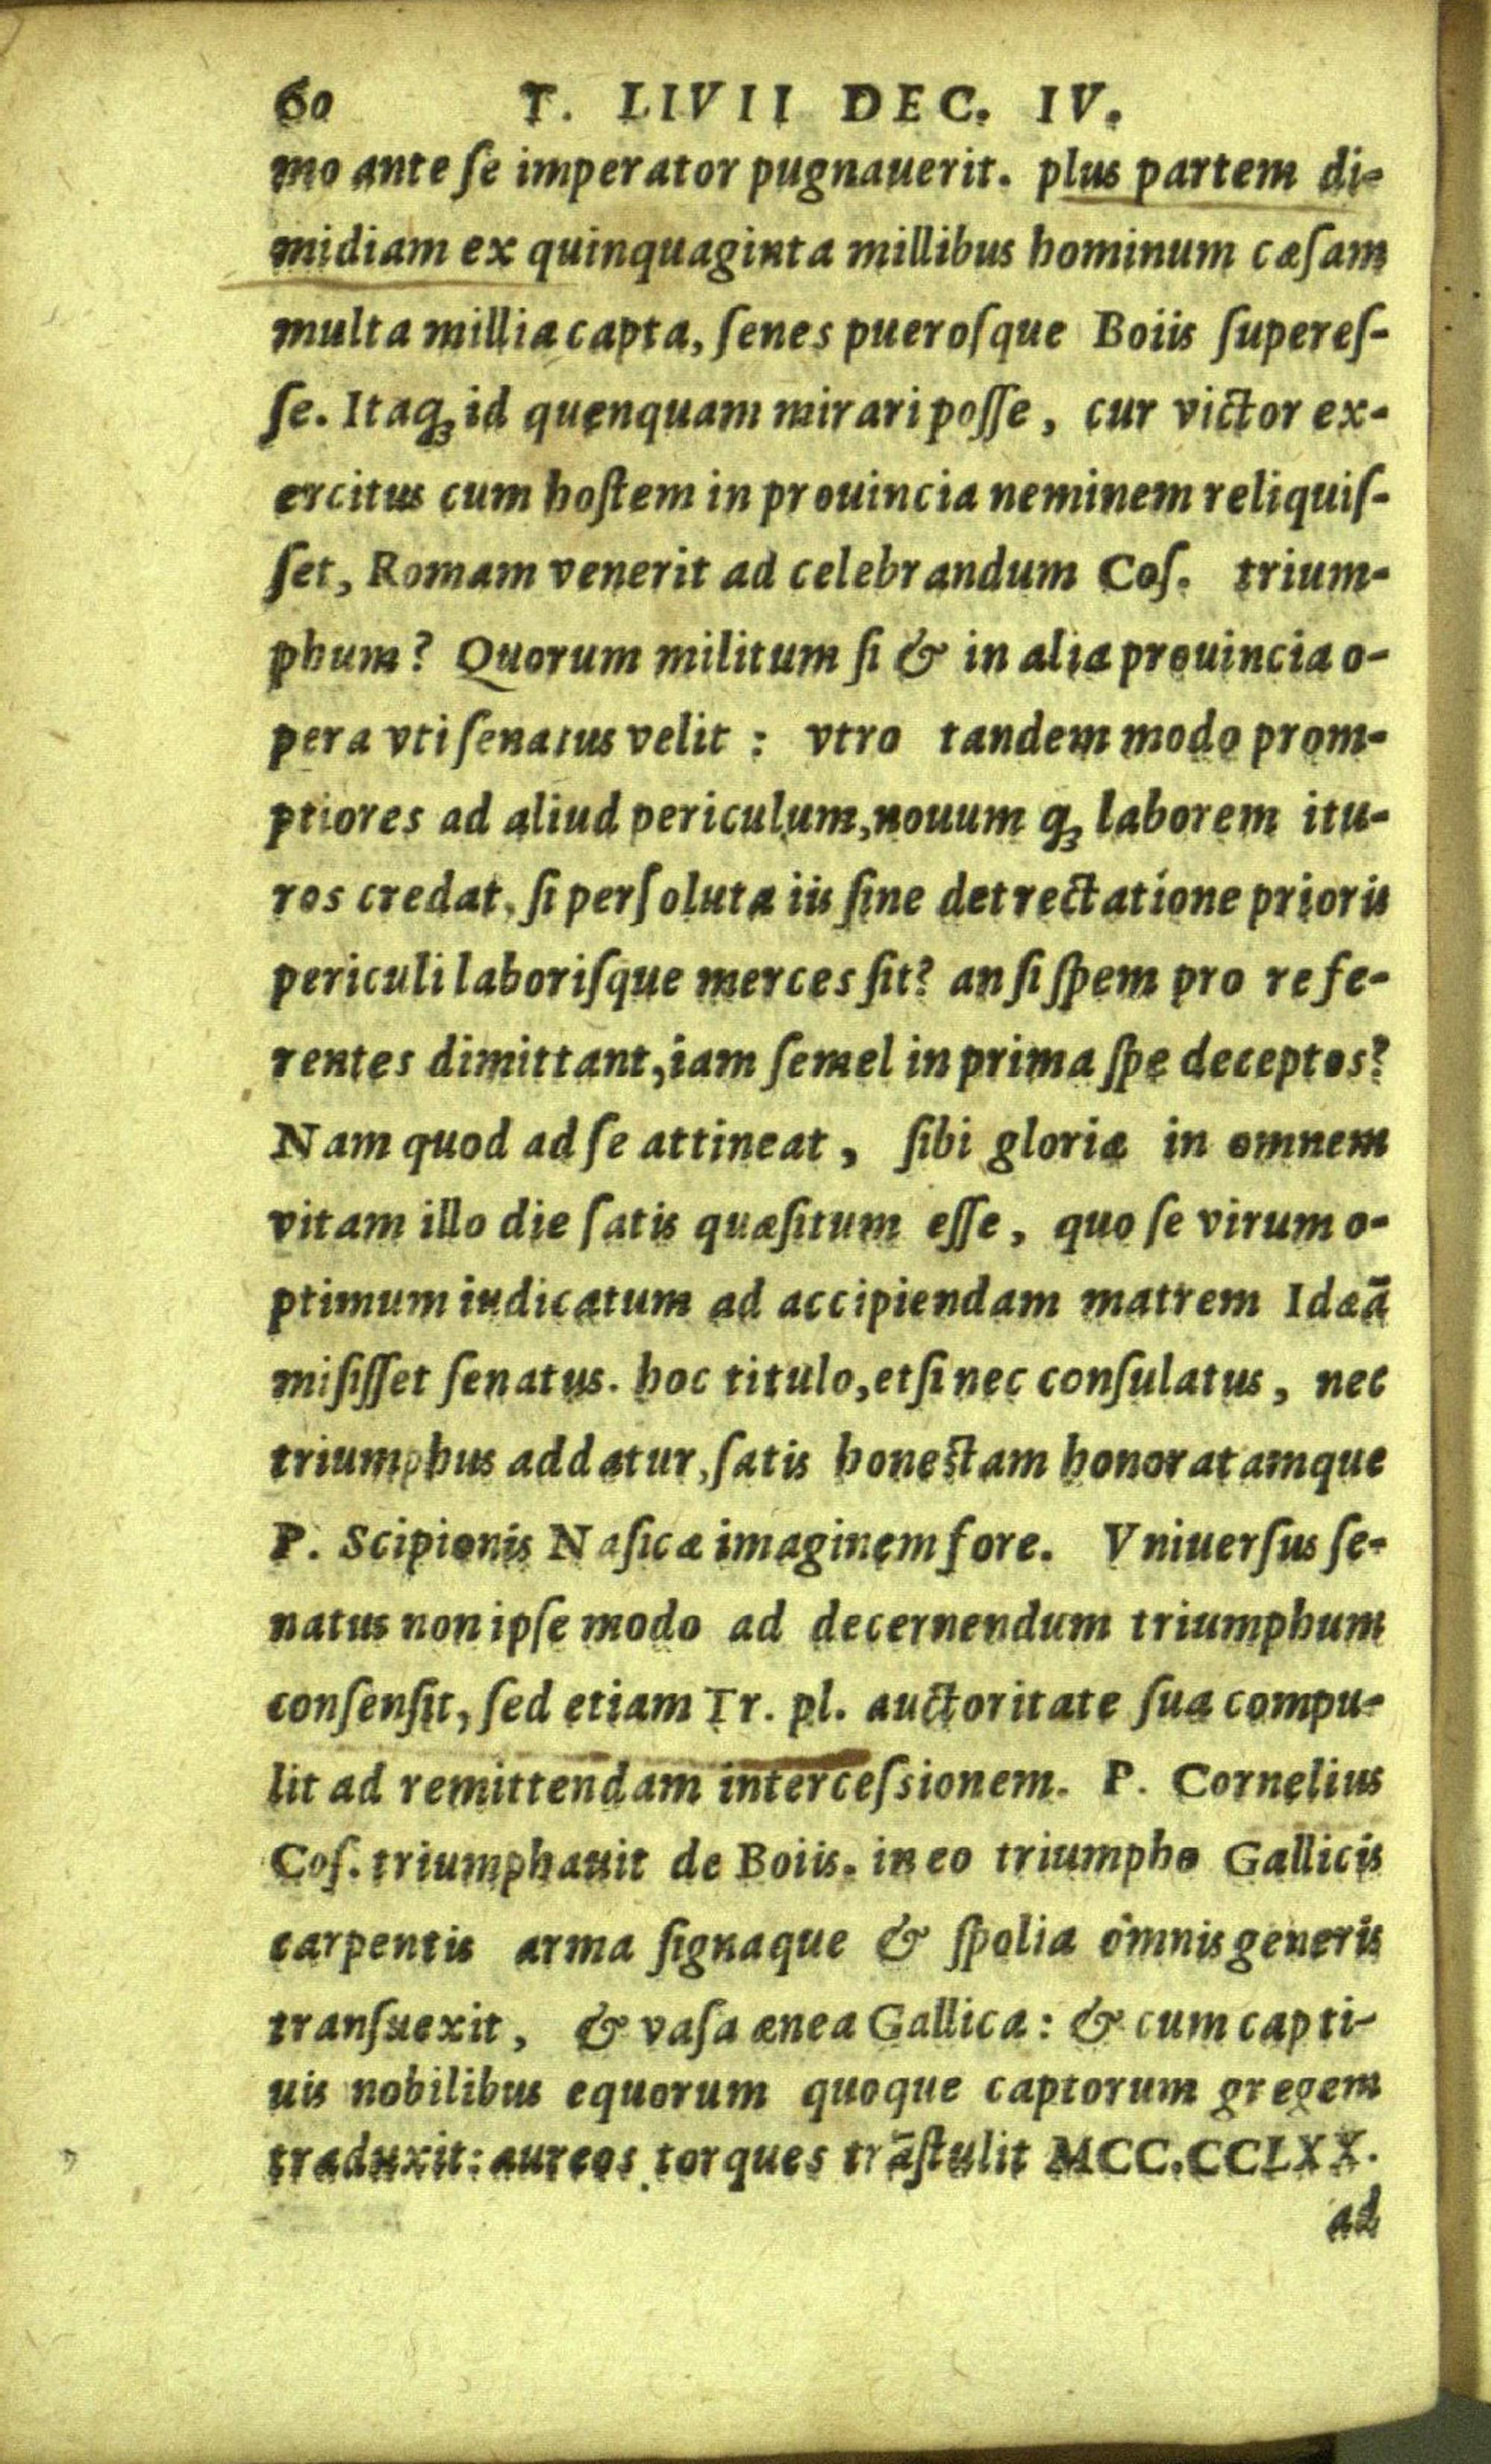 60 T. LIVII DEC. IV.
mo ante ſe imperator pugnauerit. plus partem di-
midiam ex quinquaginta millibus hominum cæſam
multa millia capta, ſenes pueroſque Boiis ſupereſ-
ſe. Itaq; id quenquam mirari poſſe, cur victor ex-
ercitus cum hoſtem in prouincia neminem reliquiſ-
ſet, Romam venerit ad celebrandum Coſ. trium-
phum? Quorum militum ſi & in alia prouincia o-
pera vti ſenatus velit: vtro tandem modo prom-
ptiores ad aliud periculum, nouum q; laborem itu-
ros credat, ſi perſoluta iis ſine detrectatione prioris
periculi laboriſque merces ſit? an ſi ſpem pro refe-
rentes dimittant, iam ſemel in prima ſpe deceptos?
Nam quod ad ſe attineat, ſibi gloriæ in omnem
vitam illo die ſatis quæſitum eſſe, quo ſe virum o-
ptimum iudicatum ad accipiendam matrem Idæã
miſiſſet ſenatus. hoc titulo, etſi nec conſulatus, nec
triumphus addatur, ſatis honeſtam honoratamque
P. Scipionis Naſicæ imaginem fore. Vniuerſus ſe-
natus non ipſe modo ad decernendum triumphum
conſenſit, ſed etiam Tr. pl. auctoritate ſua compu-
lit ad remittendam interceſsionem. P. Cornelius
Coſ. triumphauit de Boiis. in eo triumpho Gallicis
carpentis arma ſignaque & ſpolia omnis generis
tranſuexit, & vaſa ænea Gallica: & cum capti-
uis nobilibus equorum quoque captorum gregem
traduxit: aureos torques trãſtulit MCC.CCLXX.
ad